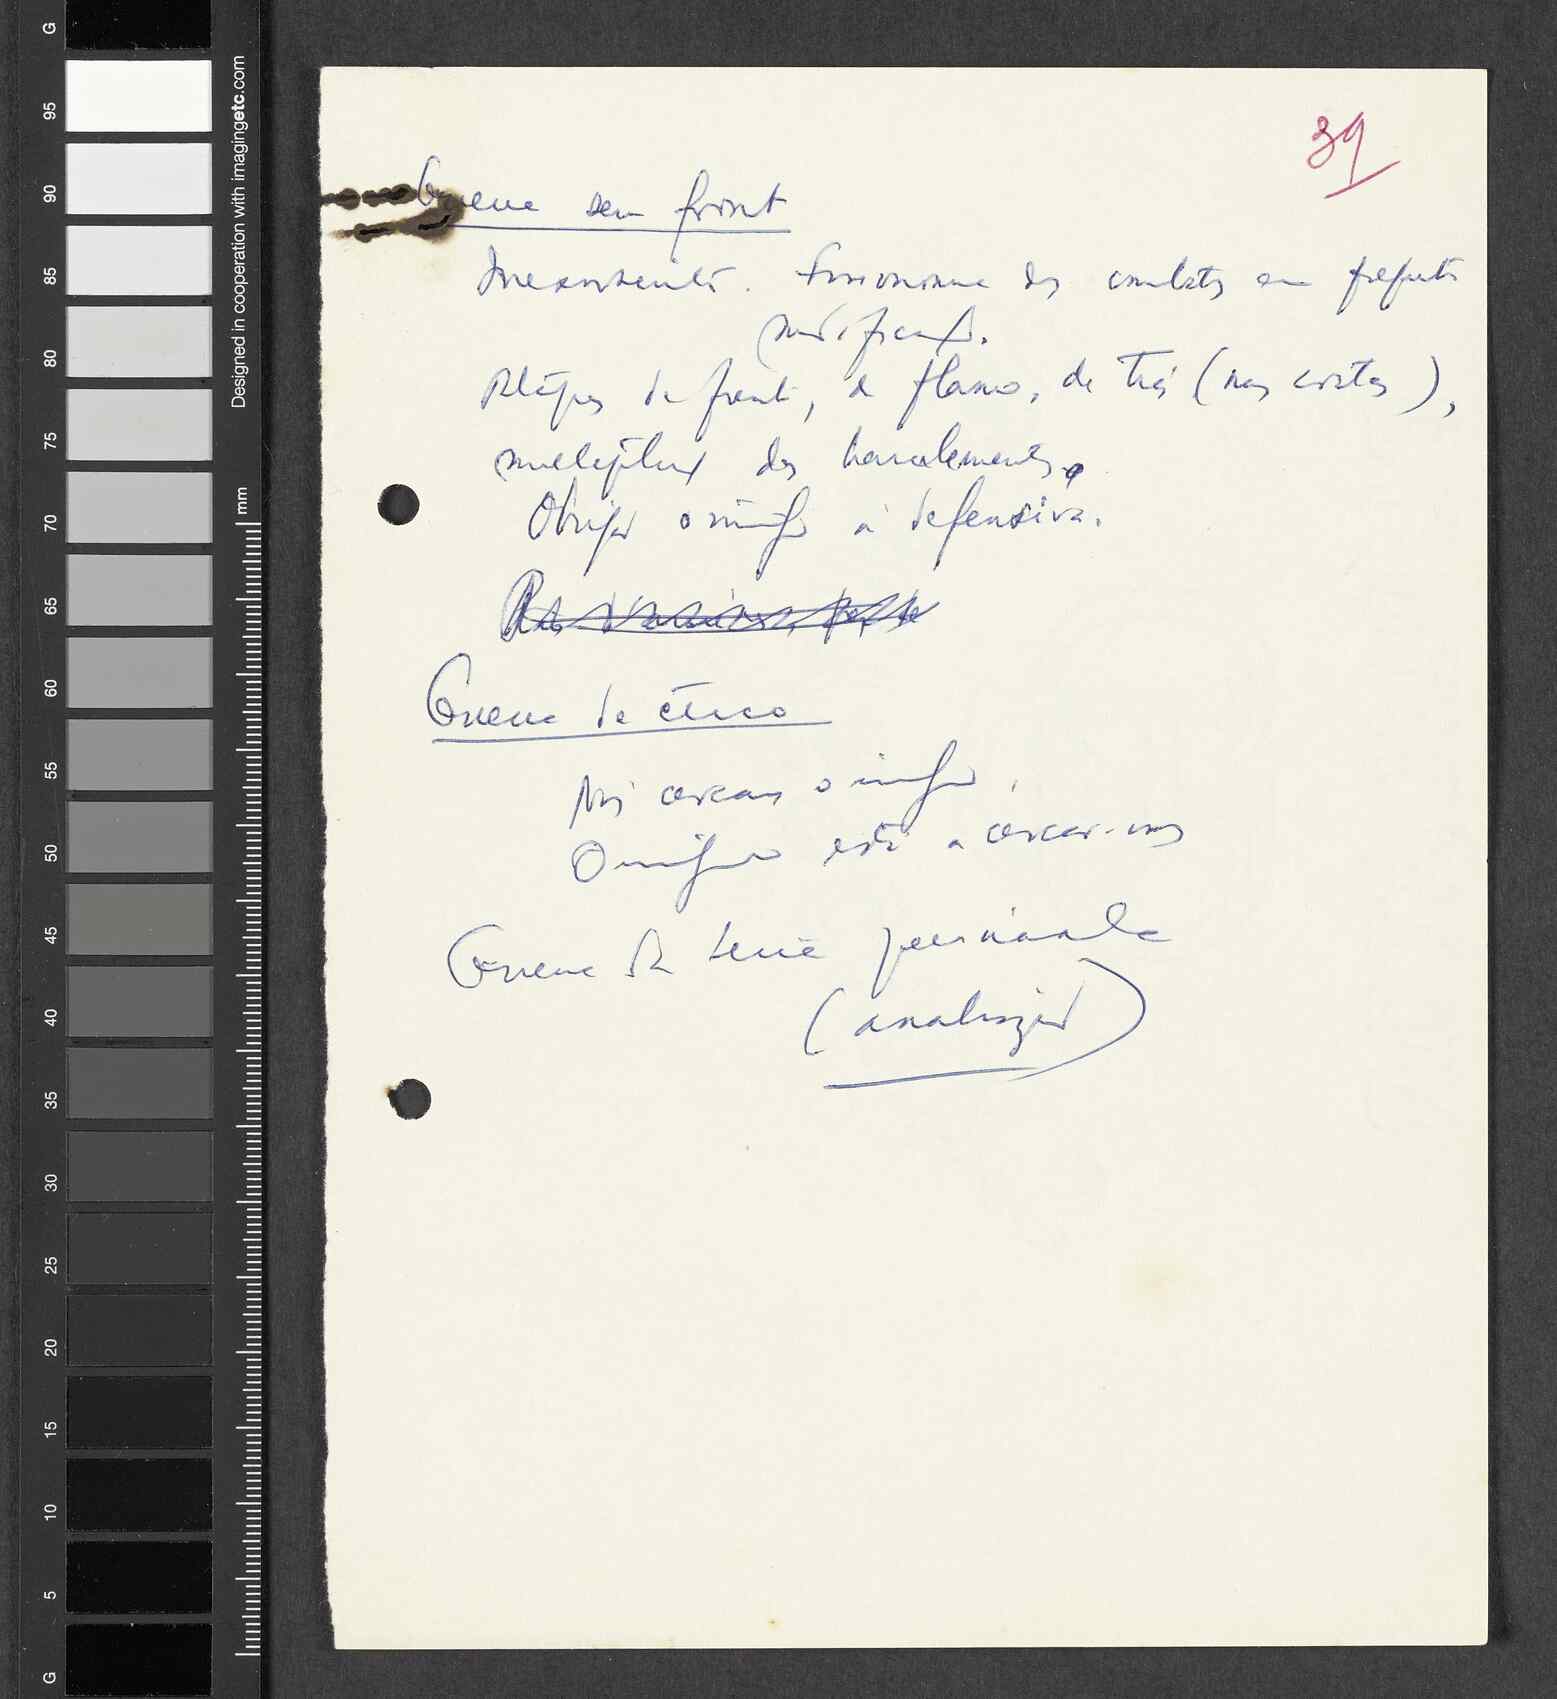 39
Guerra sem front
Inexistente. Fisionomia dos combates em frequente
modificação.
Ataques de frente, de flanco, de trás (nas costas),
multiplicar os harcelements.
Obrigar o inimigo à defensiva.
Guerra de cerco
Nós cercamos o inimigo,
O inimigo está a cercar-nos
Guerra de
(analizar)
G
95
90
85
80
75
70
65
60
55
50
45
40
35
30
25
20
15
10
5
G
Designed in cooperation with imagingetc.com
mm